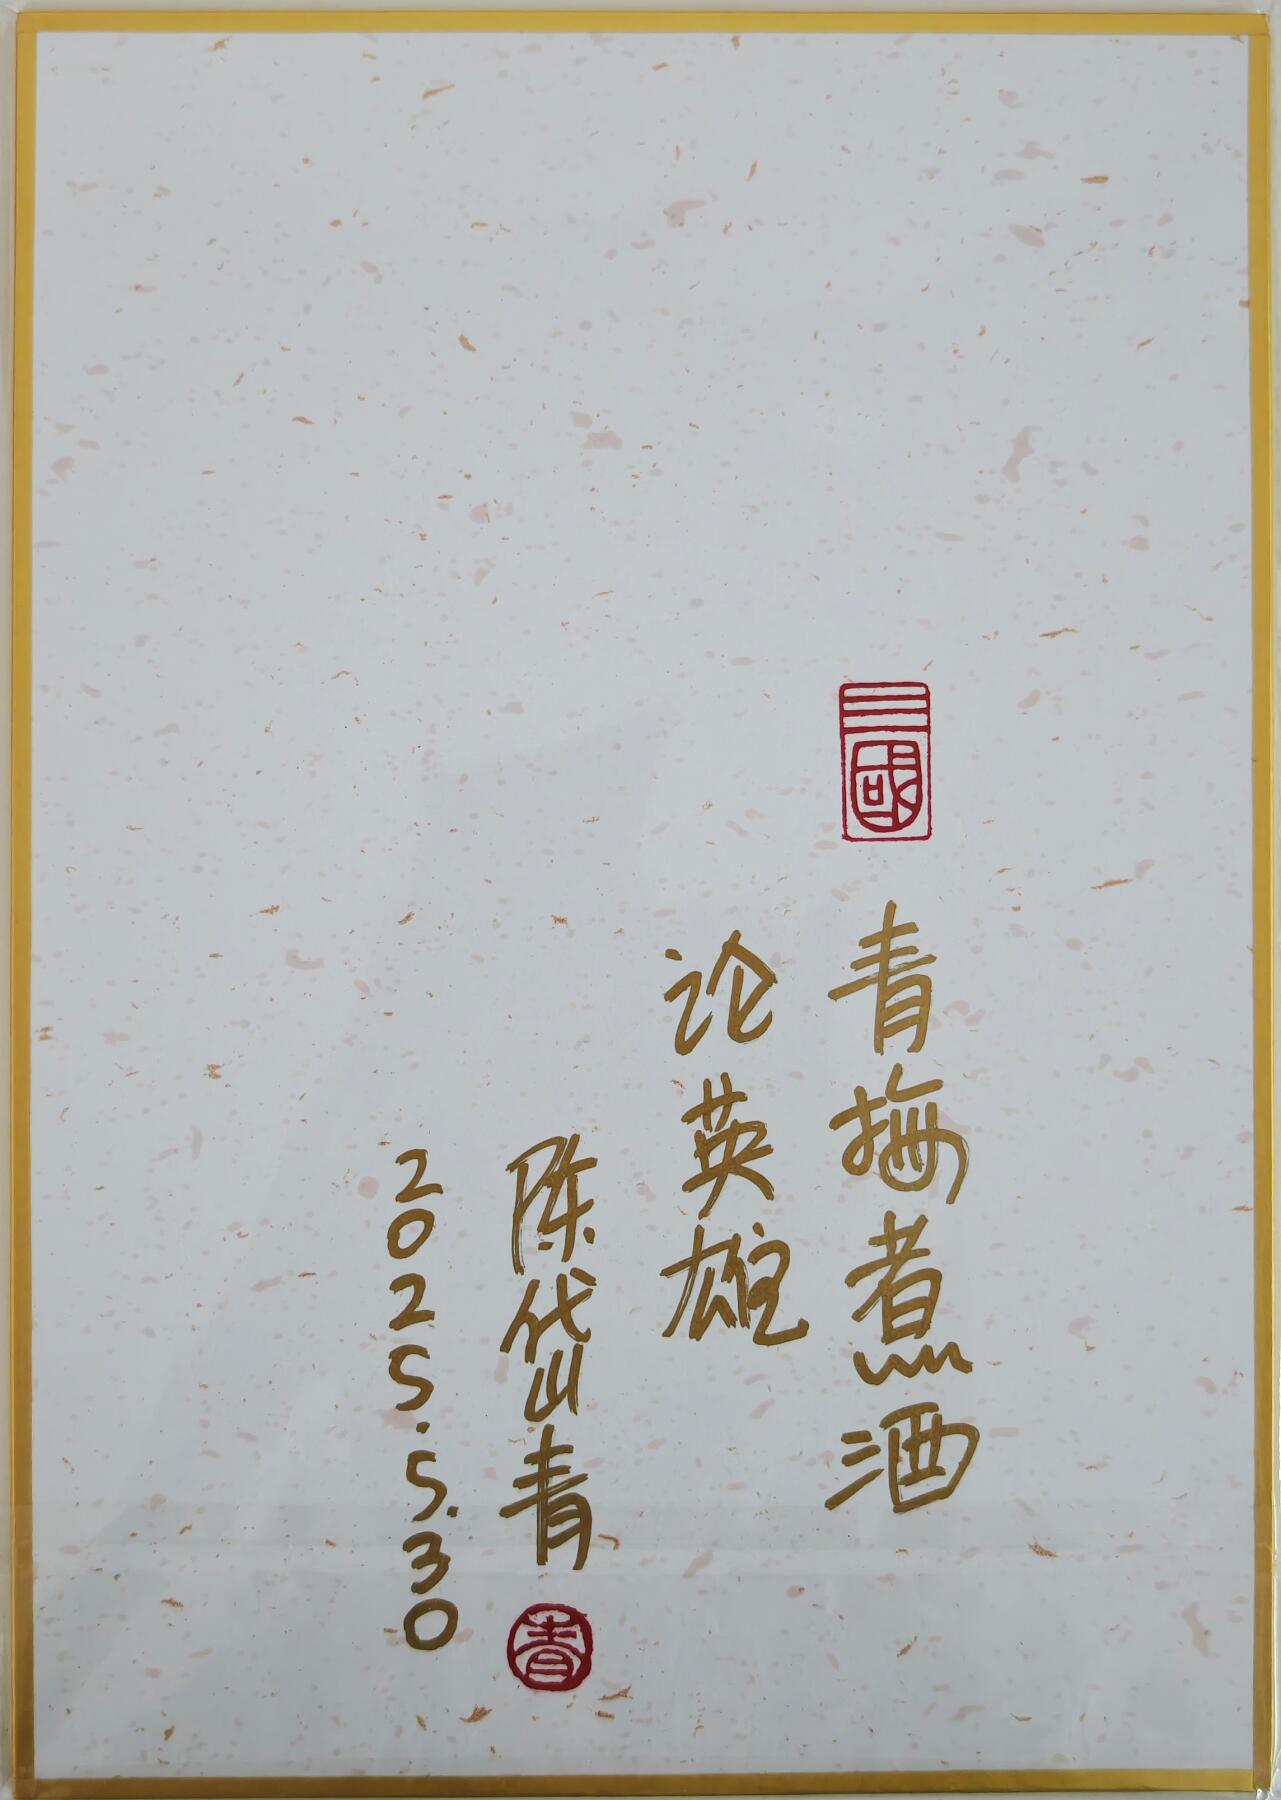 三國
青梅煮酒
论英雄
陈岱青
青
2025.5.30